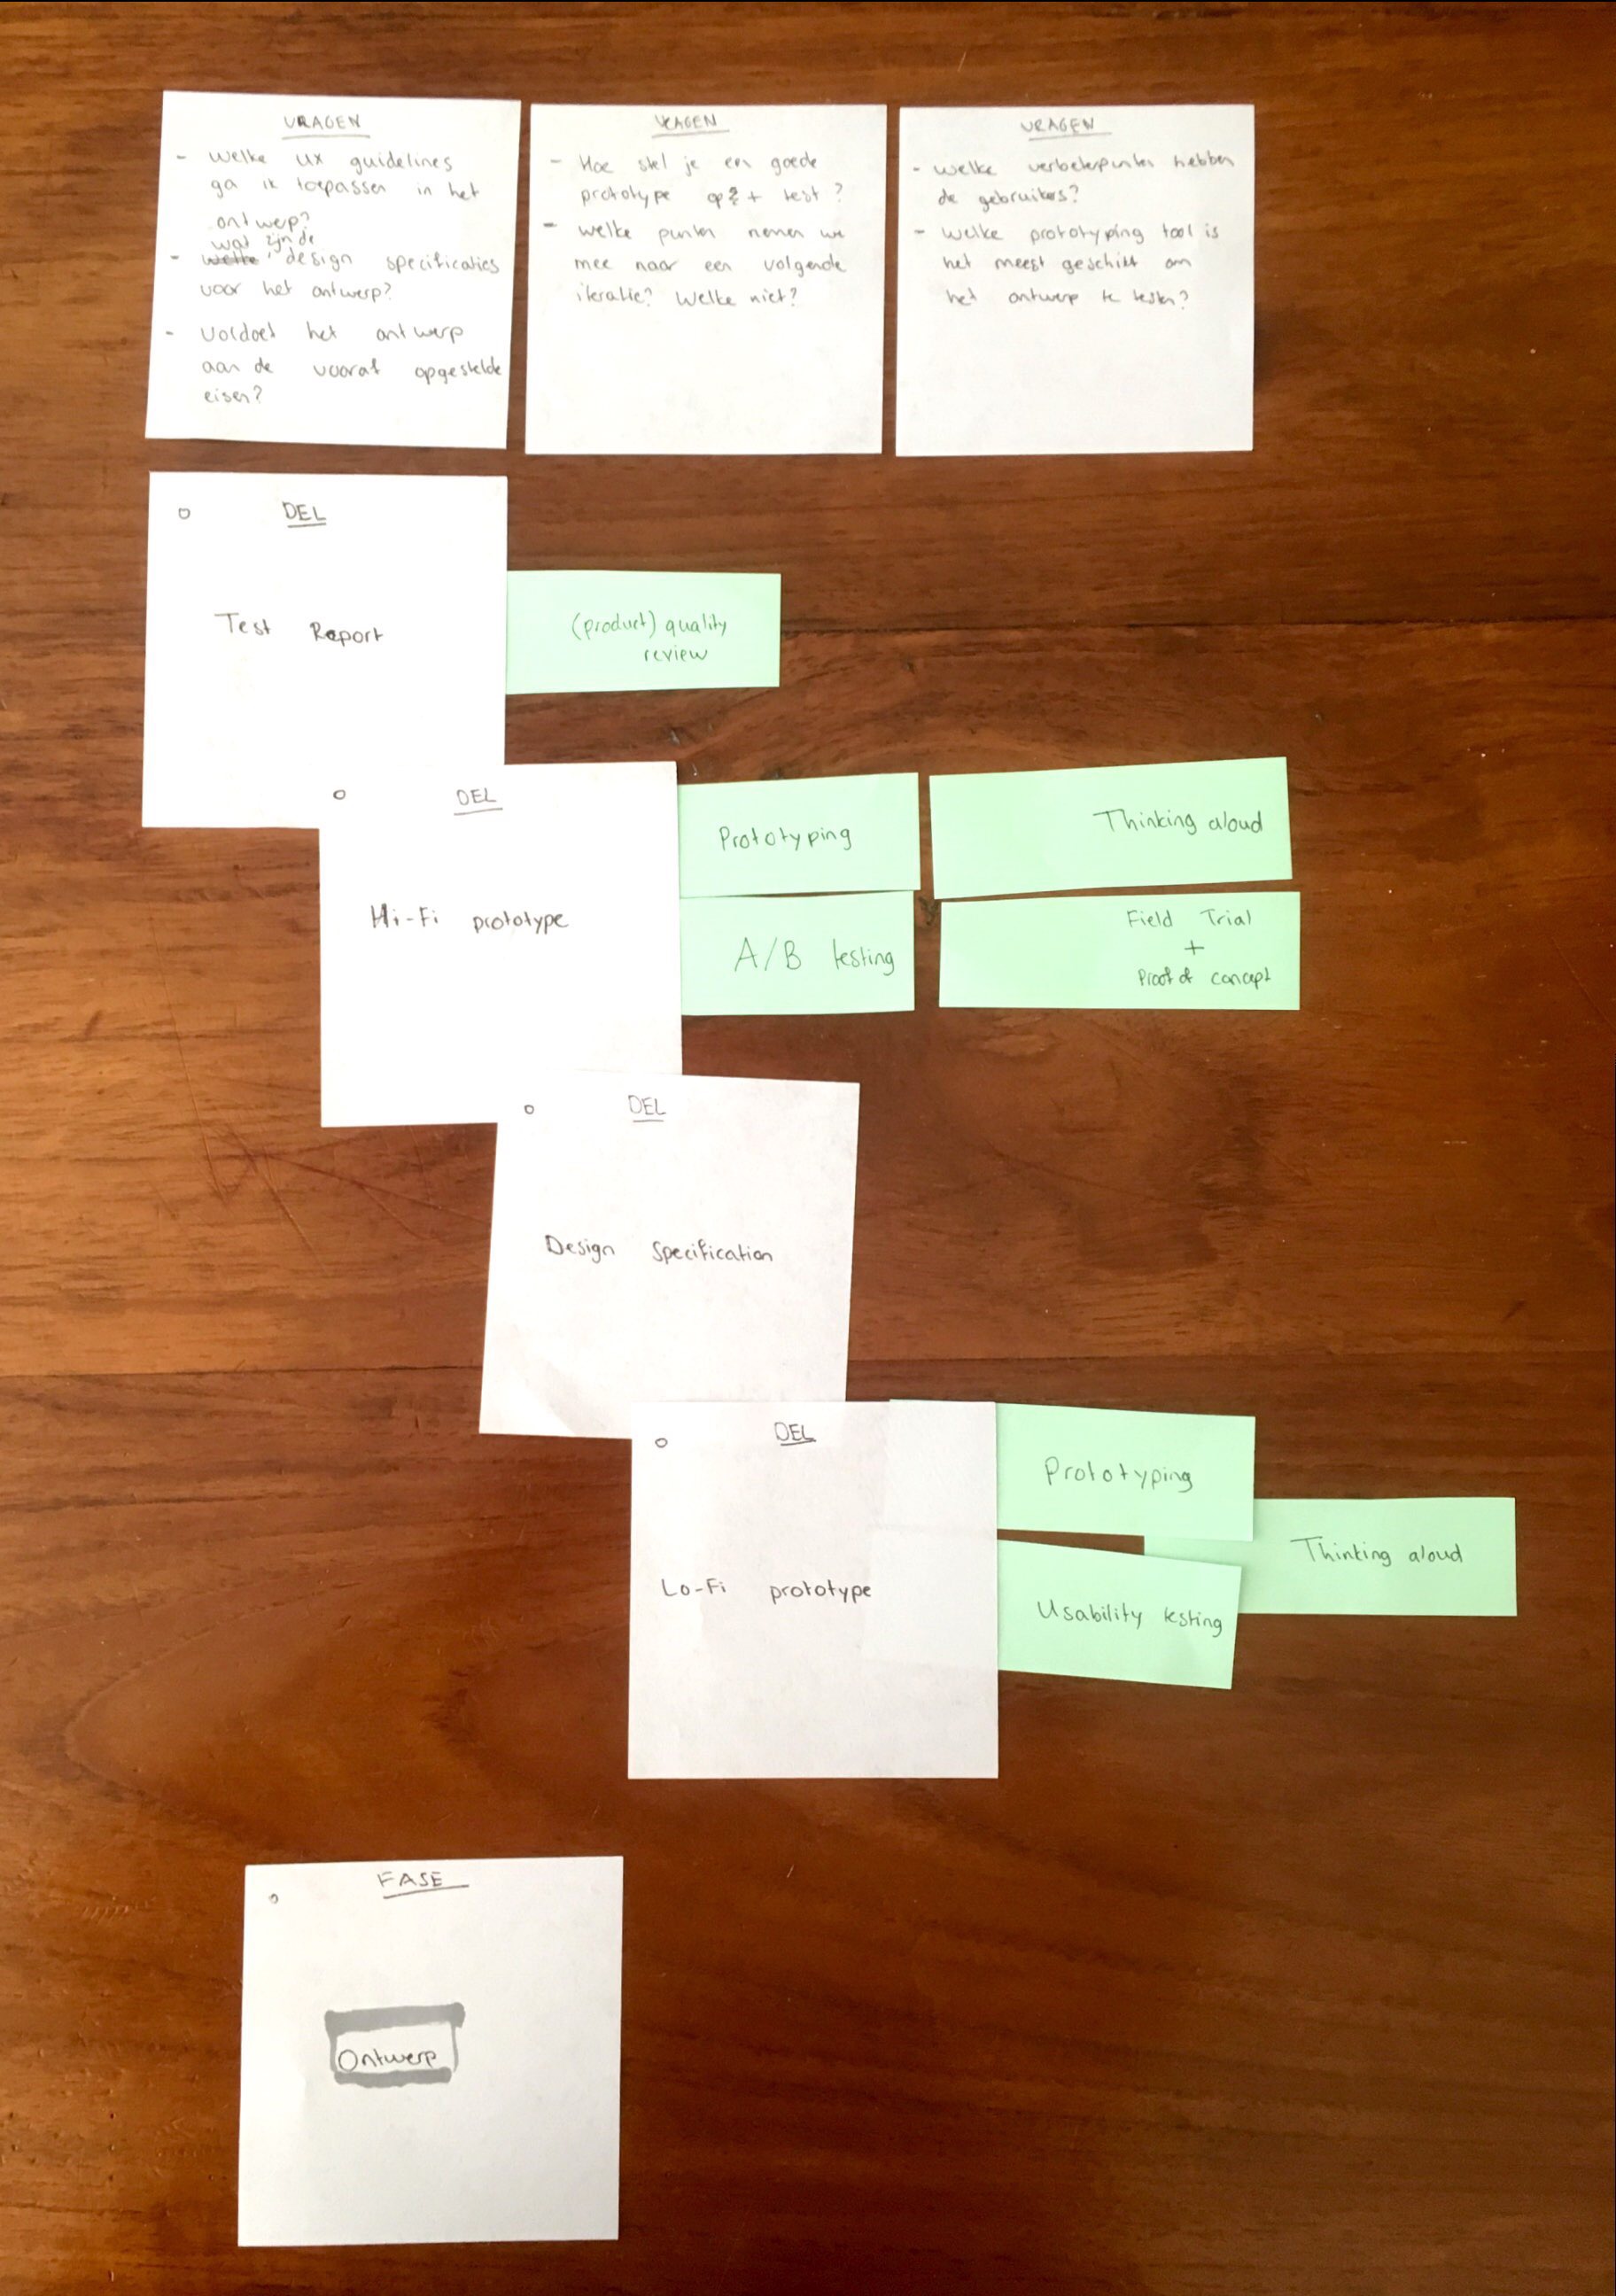 VRAGEN
- Welke UX guidelines
ga ik toepassen in het
ontwerp?
wat zijn de
- welke design specificaties
voor het ontwerp?
- Voldoet het ontwerp
aan de vooraf opgestelde
eisen?
VRAGEN
- Hoe stel je een goede
prototype op? + test?
- Welke punten nemen we
mee naar een volgende
iteratie? Welke niet?
VRAGEN
- Welke verbeterpunten hebben
de gebruikers?
- Welke prototyping tool is
het meest geschikt om
het ontwerp te testen?
DEL
Test Report
(product) quality
review
DEL
Hi-Fi prototype
Prototyping
Thinking aloud
A/B testing
Field Trial
+
Proof of concept
DEL
Design Specification
DEL
Lo-Fi prototype
Prototyping
Thinking aloud
Usability testing
FASE
Ontwerp